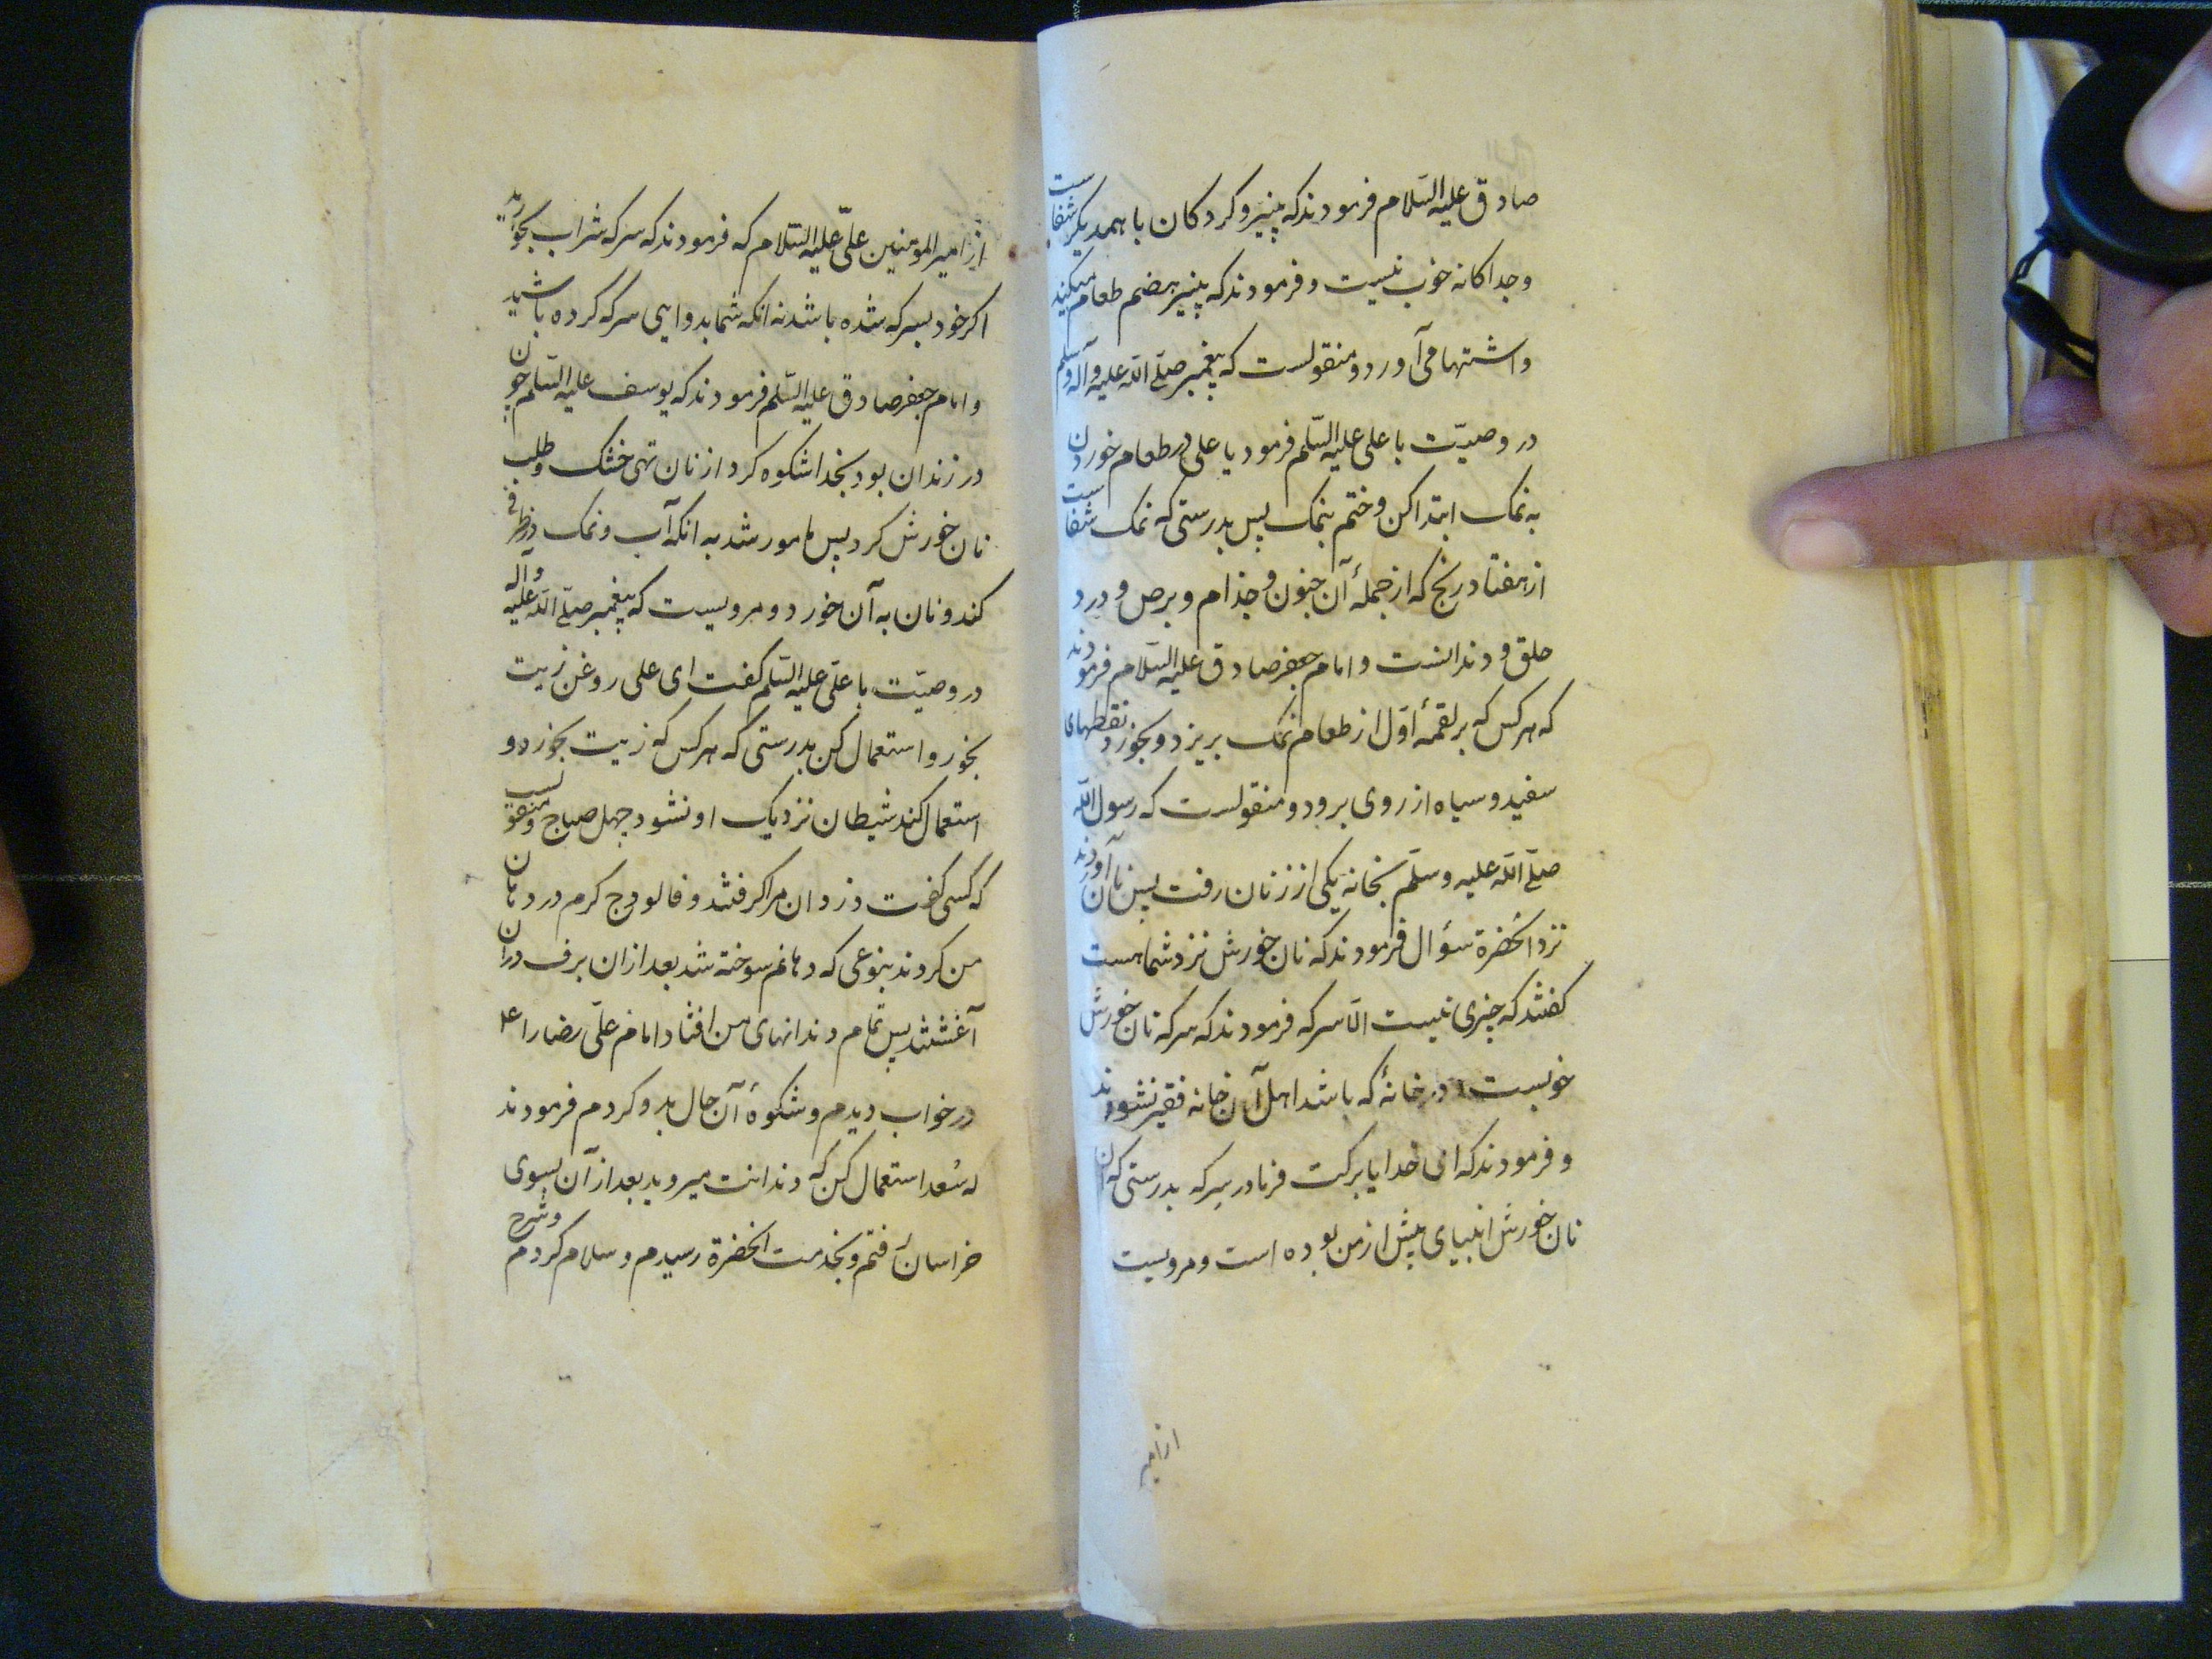 صادق علیه السّلام فرمودند که پنیر و کردکان با همدیکر شفاست
و جداکانه خوب نیست و فرمودند که پنیر هضم طعام میکند
و اشتها می‌آورد و منقولست که پیغمبر صلّے الله علیه وآله وسلم
در وصیّت با علی علیه السّلم فرمود یا علی در طعام خوردن
به نمک ابتدا کن و ختم بنمک پس بدرستی که نمک شفاست
از هفتاد رنج که از جملهٔ آن جنون و جذام و برص و درد
حلق و دندانست و امام جعفر صادق علیه السّلام فرمودند
که هر کس که بر لقمهٔ اوّل از طعام نمک بریزد و بخورد نقطهای
سفید و سیاه از روی برود و منقولست که رسول الله
صلّے الله علیه وسلّم بخانه یکی از زنان رفت پس نان آوردند
نزد انحضرة سؤال فرمودند که نان خورش نزد شما هست
کفتند که چیزی نیست الّا سرکه فرمودند که سرکه نان خورش
خوبست در خانهٔ که باشد اهل آن خانه فقیر نشوند
و فرمودند که ای خدایا برکت فرما در سرکه بدرستی که ان
نان خورش انبیای پیش از من بوده است و مرویست
از امیر
از امیر المومنین علیّ علیه السّلام که فرمودند که سرکه شراب بخورید
اکر خود بسرکه شده باشد نه انکه شما بدوایی سرکه کرده باشید
و امام جعفر صادق علیه السّلم فرمودند که یوسف علیه السّلم چون
در زندان بود بخدا شکوه کرد از نان تهی خشک و طلب
نان خورش کرد پس مامور شد به انکه آب و نمک در ظرفی
کند و نان به آن خورد و مرویست که پیغمبر صلّے الله علیه وآله
در وصیّت با علیّ علیه السّلم کفت ای علی روغن زیت
بخور و استعمال کن بدرستی که هر کس که زیت بخورد و
استعمال کند شیطان نزدیک او نشود چهل صباح و منقولست
که کسی کفت دزدان مرا کرفتند و فالودج کرم در دهان
من کردند بنوعی که دهانم سوخته شد بعد از ان برف در ان
آغشتند پس تمام دندانهای من افتاد امام علیّ رضا را ع
در خواب دیدم و شکوهٔ آن حال بدو کردم فرمودند
که سُعد استعمال کن که دندانت میروید بعد از آن بسوی
خراسان رفتم و بخدمت انحضرة رسیدم و سلام کردم و شرح